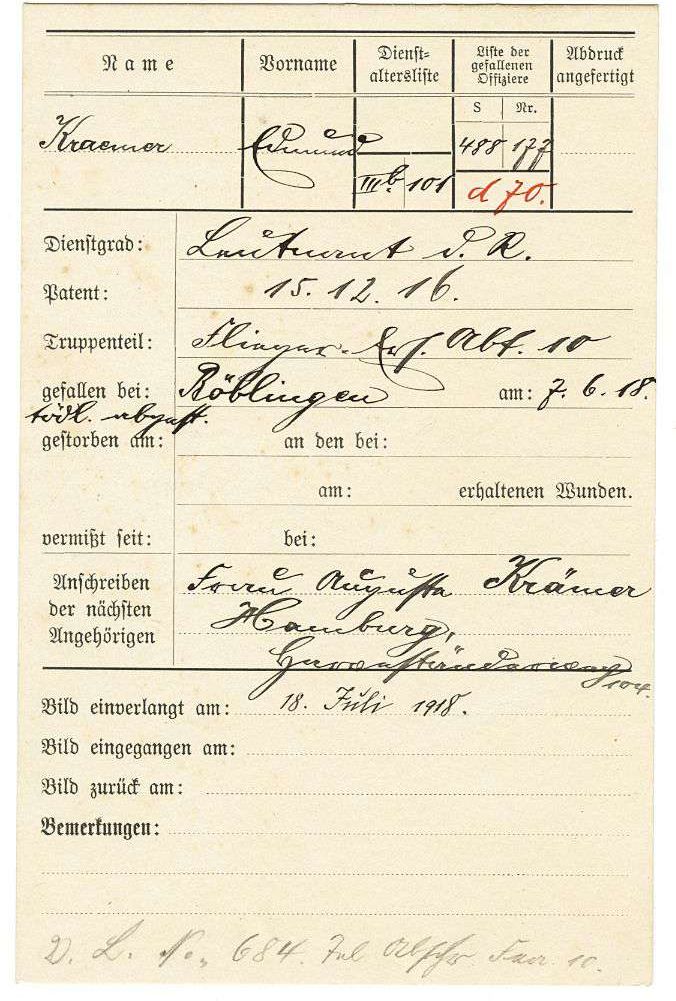 Name
Vorname
Dienst-
altersliste
Liste der
gefallenen
Offiziere
Abdruck
angefertigt
S Nr.
Kraemer Edmund 488 177
IIIb 101 d 70.
Dienstgrad: Leutnant d. R.
Patent: 15. 12. 16.
Truppenteil: Flieger-Ers. Abt. 10
gefallen bei: Böblingen am: 7. 6. 18.
tödl. abgest.
gestorben am: an den bei:
am: erhaltenen Wunden.
vermißt seit: bei:
Anschreiben
der nächsten
Angehörigen
Frau Augusta Krämer
Hamburg,
104.
Bild einverlangt am: 18. Juli 1918.
Bild eingegangen am:
Bild zurück am:
Bemerkungen:
D. L. No. 684.